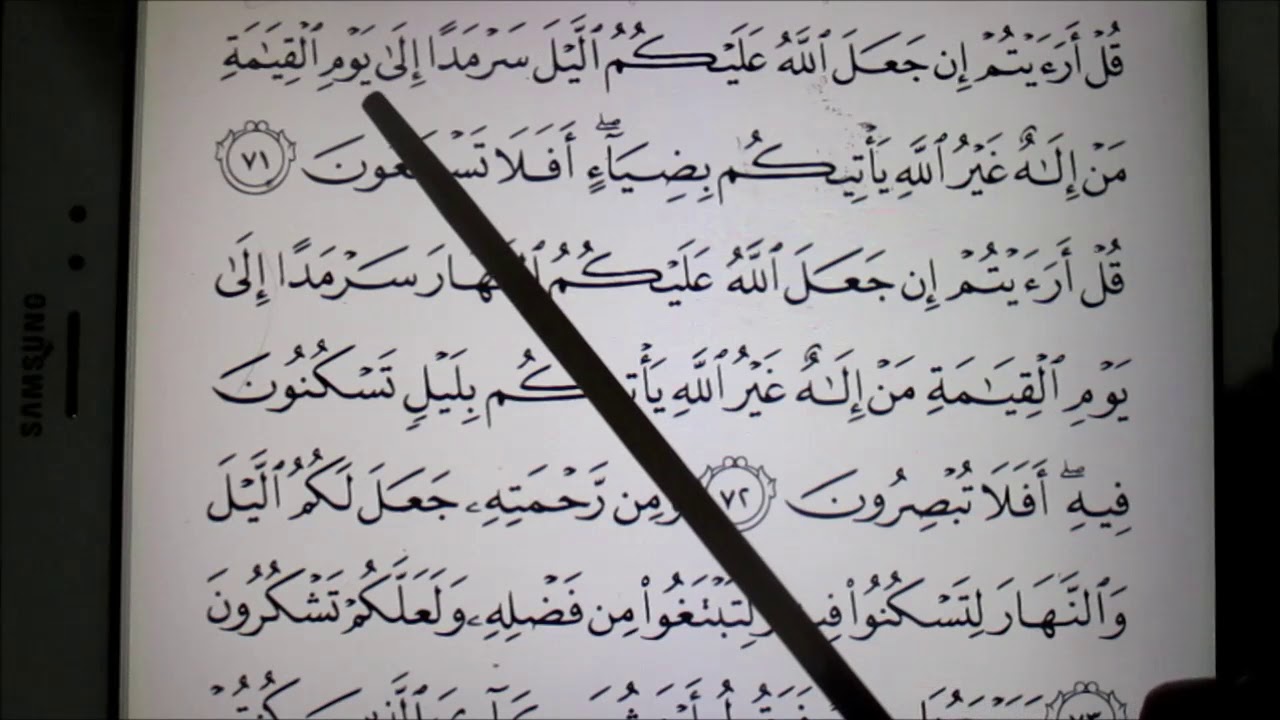 قُلْ أَرَءَيْتُمْ إِن جَعَلَ ٱللَّهُ عَلَيْكُمُ ٱلَّيْلَ سَرْمَدًا إِلَىٰ يَوْمِ ٱلْقِيَـٰمَةِ
مَنْ إِلَـٰهٌ غَيْرُ ٱللَّهِ يَأْتِيكُم بِضِيَآءٍ ۖ أَفَلَا تَسْمَعُونَ ٧١
قُلْ أَرَءَيْتُمْ إِن جَعَلَ ٱللَّهُ عَلَيْكُمُ ٱلنَّهَارَ سَرْمَدًا إِلَىٰ
يَوْمِ ٱلْقِيَـٰمَةِ مَنْ إِلَـٰهٌ غَيْرُ ٱللَّهِ يَأْتِيكُم بِلَيْلٍ تَسْكُنُونَ
فِيهِ ۖ أَفَلَا تُبْصِرُونَ ٧٢ وَمِن رَّحْمَتِهِۦ جَعَلَ لَكُمُ ٱلَّيْلَ
وَٱلنَّهَارَ لِتَسْكُنُوا۟ فِيهِ وَلِتَبْتَغُوا۟ مِن فَضْلِهِۦ وَلَعَلَّكُمْ تَشْكُرُونَ
٧٣
SAMSUNG